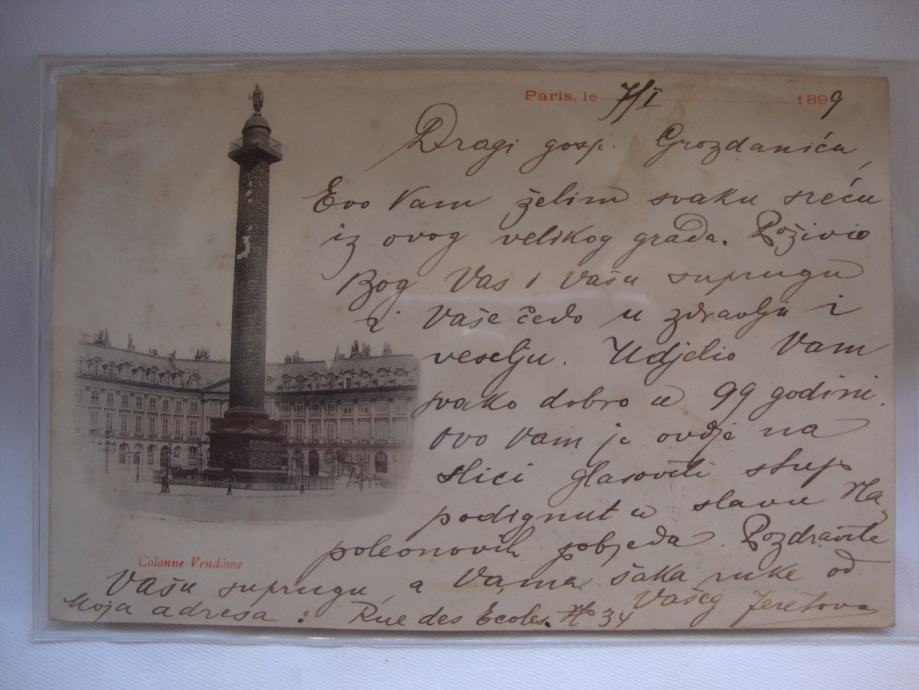 Paris, le 7/I 1899
Dragi gosp. Grozdaniću,
Evo Vam želim svaku sreću
iz ovog velikog grada. Poživio
Bog Vas i Vašu suprugu
i Vaše čedo u zdravlju i
veselju. Udjelio Vam
svako dobro u 99 godini.
Ovo Vam je ovdje na
slici glasoviti stup
podignut u slavu Na
poleonovih pobjeda. Pozdravite
Colonne Vendôme
Vašu suprugu, a Vama šaka ruke od
Vašeg
Moja adresa: Rue des Ecoles. No 34